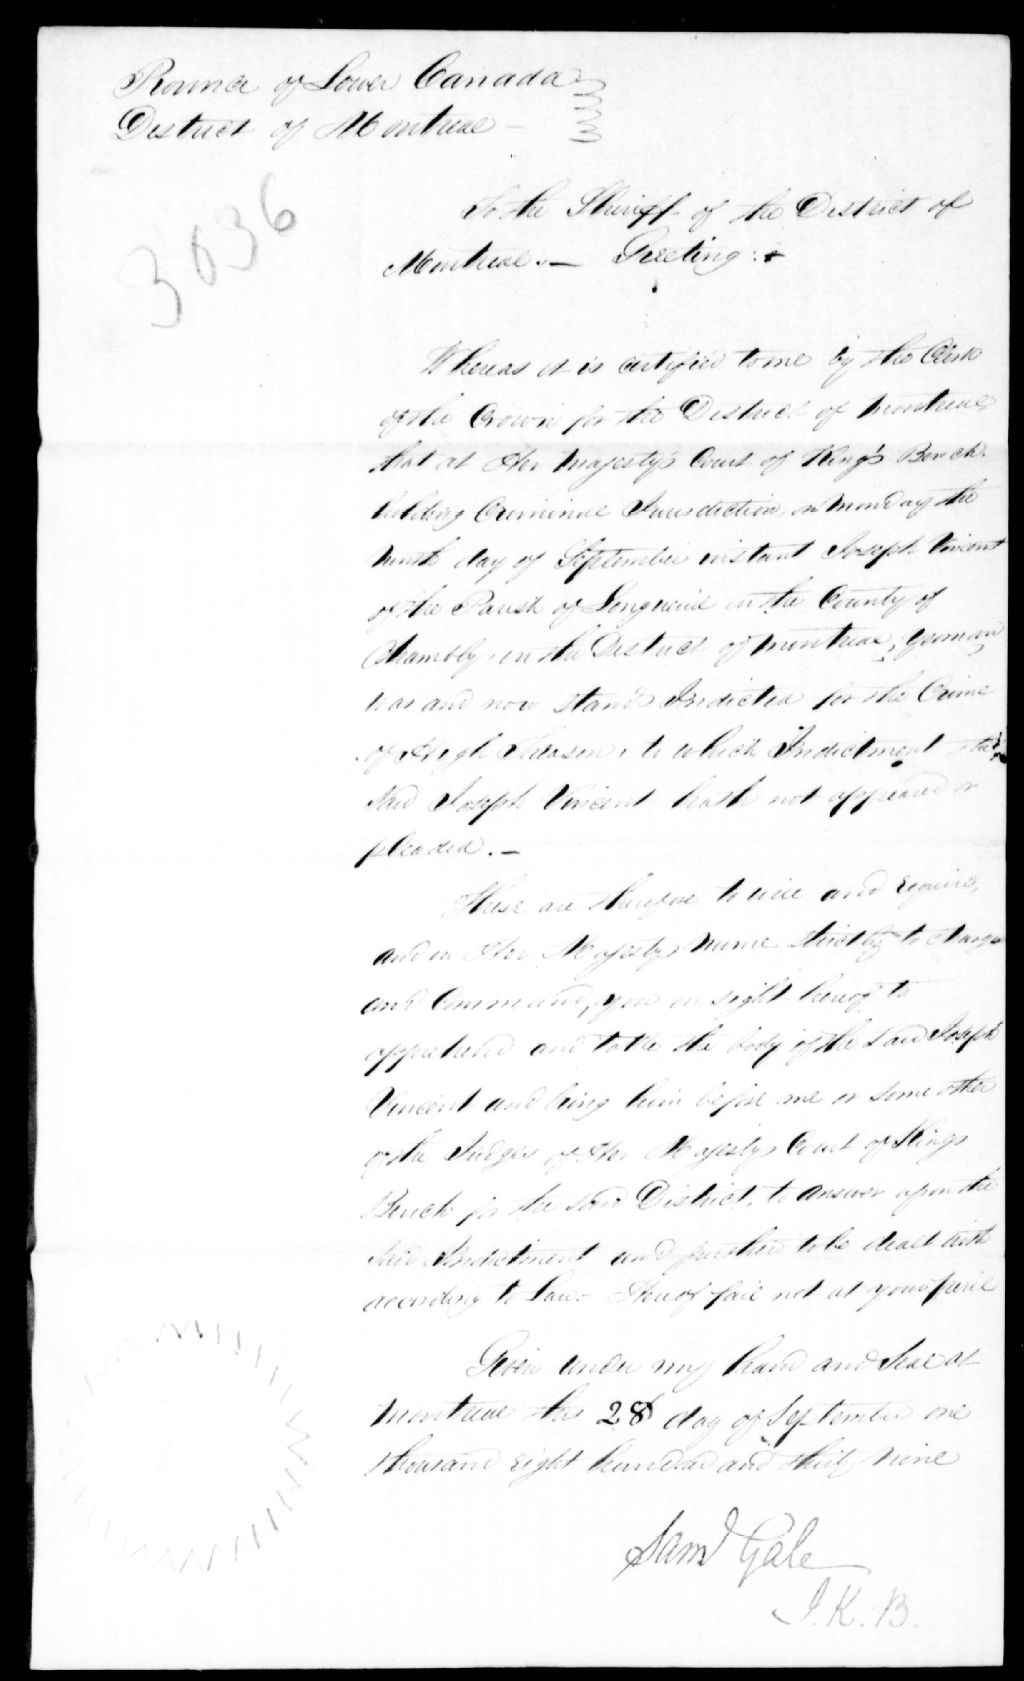 Province of Lower Canada
District of Montreal —
3036
To the Sheriff of the District of
Montreal. — Greeting :
Whereas it is certified to me by the Clerk
of the Crown for the District of Montreal
that at Her Majesty's Court of King's Bench
holding Criminal Jurisdiction, on Monday the
ninth day of September instant Joseph Vincent
of the Parish of Longueuil in the County of
Chambly in the District of Montreal, Yeoman,
was and now stands Indicted for the Crime
of High Treason, to which Indictment the
said Joseph Vincent hath not appeared or
pleaded. —
These are therefore to will and require,
and in Her Majestys name strictly to charge
and Command, you on sight hereof to
apprehend and take the body of the said Joseph
Vincent and bring him before me or some other
of the Judges of Her Majestys Court of Kings
Bench for the said District, to answer upon the
said Indictment and further to be dealt with
according to Law. Hereof fail not at your peril
Given under my hand and Seal at
Montreal this 28 day of September one
thousand eight hundred and thirty nine
Saml Gale
J. K. B.